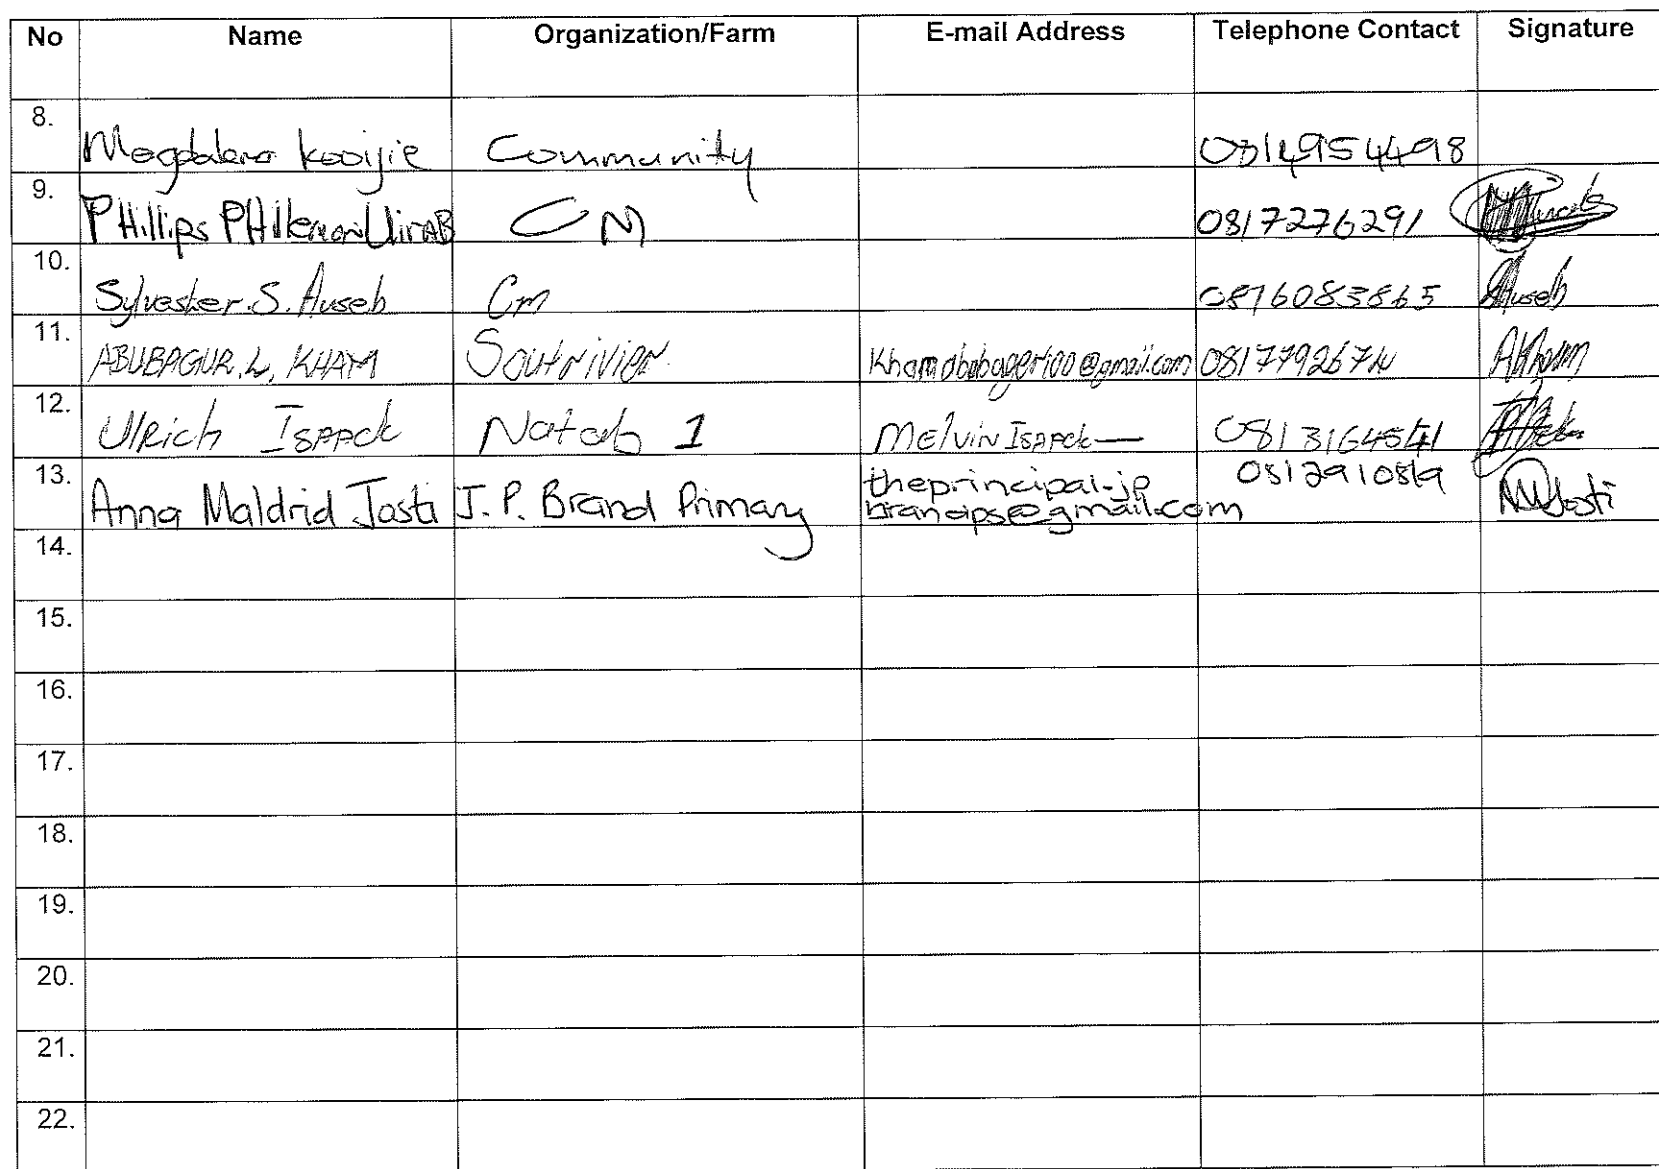 No Name Organization/Farm E-mail Address Telephone Contact Signature
8. Magdalena Kooijie Community
9. Phillips PHilemon UiraB CM 0817276291
10. Sylvester. S. Auseb Cm 0816083865 Auseb
11. ABUBAGUR. L. KHAM Soutrivier
12. Ulrich Isaack Natab 1 Melvin Isaack 0813164541
13. Anna Maldrid Jasti J.P. Brand Primary theprincipal-jp
brandps@gmail.com
14.
15.
16.
17.
18.
19.
20.
21.
22.